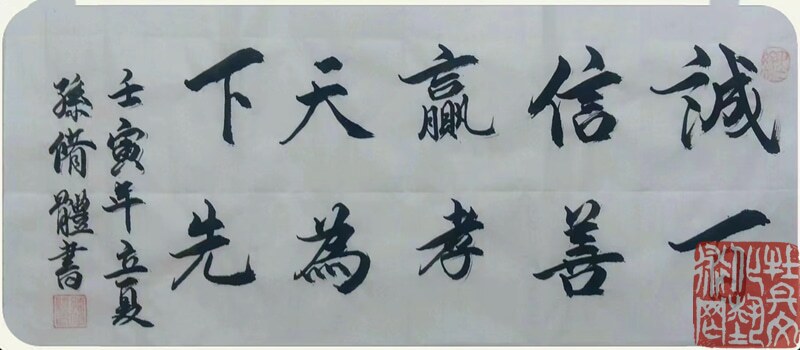 誠信贏天下
百善孝為先
壬寅年立夏
孫脩體書